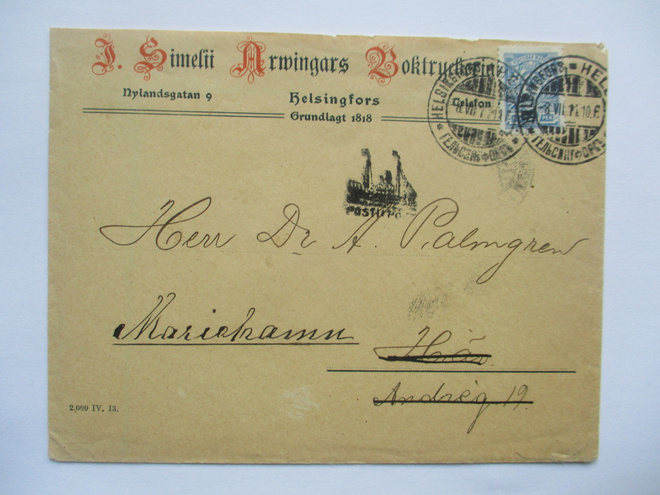 J. Simelii Arwingars Boktryckeri
Nylandsgatan 9
Helsingfors
Telefon
Grundlagt 1818
HELSINGFORS
8.VII.
ГЕЛЬСИНГФОРСЪ
HELSINGFORS
8.VII. 10.E
ГЕЛЬСИНГФОРСЪ
Herr Dr A. Palmgren
Mariehamn
Här
Andrég 19.
2,000 IV. 13.